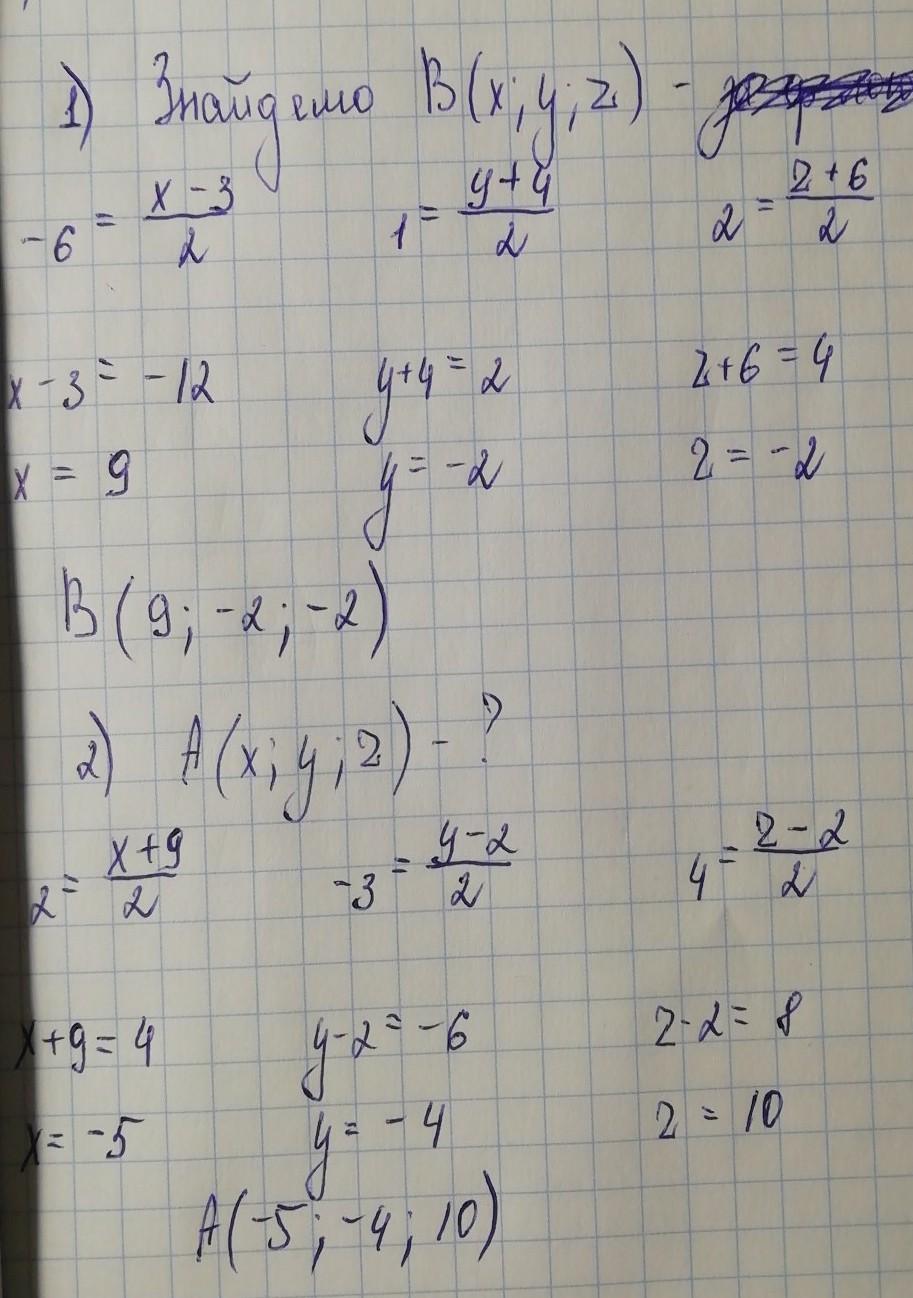 1) Знайдемо B(x; y; z) -
-6 = (x - 3)/2    1 = (y + 4)/2    2 = (z + 6)/2
x - 3 = -12    y + 4 = 2    z + 6 = 4
x = 9    y = -2    z = -2
B(9; -2; -2)
2) A(x; y; z) - ?
2 = (x + 9)/2    -3 = (y - 2)/2    4 = (z - 2)/2
x + 9 = 4    y - 2 = -6    z - 2 = 8
x = -5    y = -4    z = 10
A(-5; -4; 10)